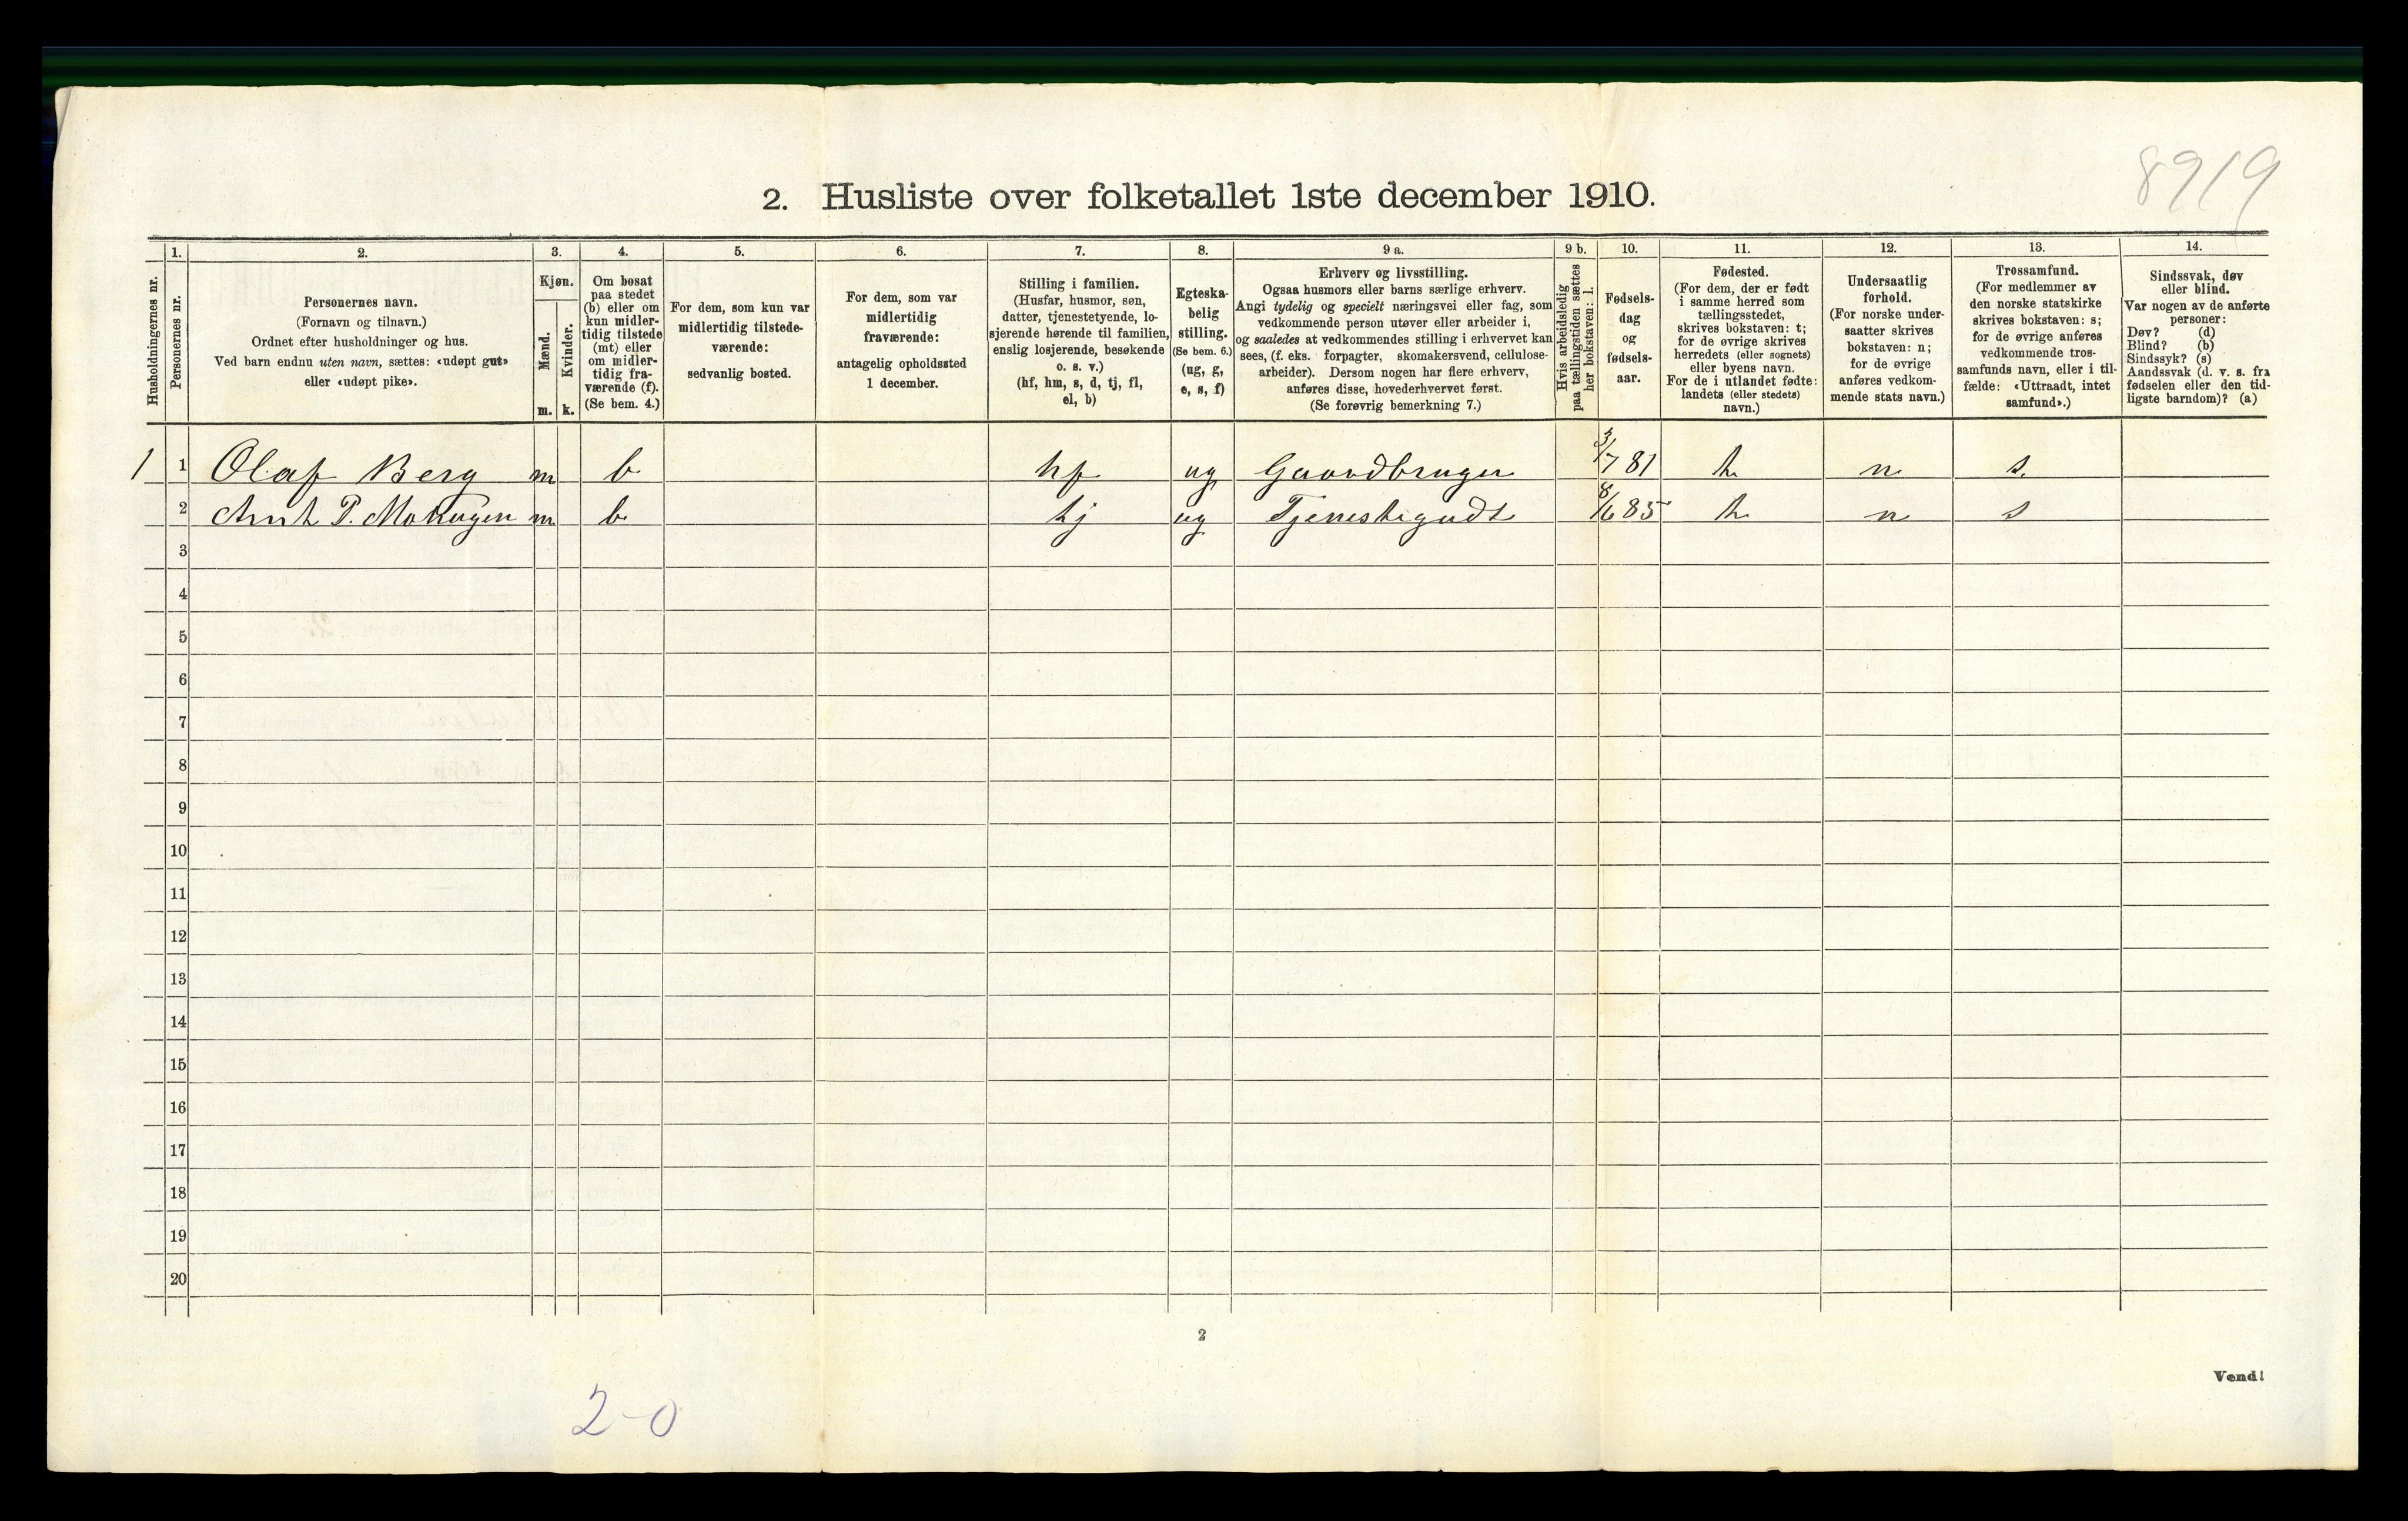 8919
2. Husliste over folketallet 1ste december 1910.
Husholdningernes nr.
1.
Personernes nr.
2.
Personernes navn.
(Fornavn og tilnavn.)
Ordnet efter husholdninger og hus.
Ved barn endnu uten navn, sættes: «udøpt gut»
eller «udøpt pike».
3.
Kjøn.
Mænd.
Kvinder.
m. k.
4.
Om bosat
paa stedet
(b) eller om
kun midler-
tidig tilstede
(mt) eller
om midler-
tidig fra-
værende (f).
(Se bem. 4.)
5.
For dem, som kun var
midlertidig tilstede-
værende:
sedvanlig bosted.
6.
For dem, som var
midlertidig
fraværende:
antagelig opholdssted
1 december.
7.
Stilling i familien.
(Husfar, husmor, søn,
datter, tjenestetyende, lo-
sjerende hørende til familien,
enslig losjerende, besøkende
o. s. v.)
(hf, hm, s, d, tj, fl,
el, b)
8.
Egteska-
belig
stilling.
(Se bem. 6.)
(ug, g,
e, s, f)
9 a.
Erhverv og livsstilling.
Ogsaa husmors eller barns særlige erhverv.
Angi tydelig og specielt næringsvei eller fag, som
vedkommende person utøver eller arbeider i,
og saaledes at vedkommendes stilling i erhvervet kan
sees, (f. eks. forpagter, skomakersvend, cellulose-
arbeider). Dersom nogen har flere erhverv,
anføres disse, hovederhvervet først.
(Se forøvrig bemerkning 7.)
9 b.
Hvis arbeidsledig
paa tællingstiden sættes
her bokstaven: l.
10.
Fødsels-
dag
og
fødsels-
aar.
11.
Fødested.
(For dem, der er født
i samme herred som
tællingsstedet,
skrives bokstaven: t;
for de øvrige skrives
herredets (eller sognets)
eller byens navn.
For de i utlandet fødte:
landets (eller stedets)
navn.)
12.
Undersaatlig
forhold.
(For norske under-
saatter skrives
bokstaven: n;
for de øvrige
anføres vedkom-
mende stats navn.)
13.
Trossamfund.
(For medlemmer av
den norske statskirke
skrives bokstaven: s;
for de øvrige anføres
vedkommende tros-
samfunds navn, eller i til-
fælde: «Uttraadt, intet
samfund».)
14.
Sindssvak, døv
eller blind.
Var nogen av de anførte
personer:
Døv? (d)
Blind? (b)
Sindssyk? (s)
Aandssvak (d. v. s. fra
fødselen eller den tid-
ligste barndom)? (a)
1 1 Olaf Berg m b hf ug Gaardbruger 3/7 81 t n s.
2 Arnt P. m b tj ug Tjenestegudt 8/6 85 t n s
3
4
5
6
7
8
9
10
11
12
13
14
15
16
17
18
19
20
2
Vend!
2-0